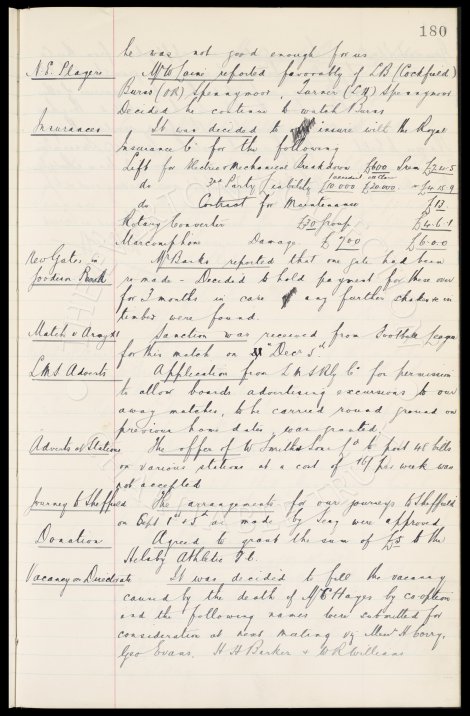 180
he was not good enough for us
N.E. Players Mr W Laine reported favorably of LB (Cockfield)
Burns (OR) Spennymoor, Turner (LH) Spennymoor
Decided he continue to watch Burns
Insurances It was decided to insure with the Royal
Insurance Co for the following
Left for Electric Mechanical Breakdown £600 Sum
do 3rd Party Liability £10.000 £20.000 £4.15.9
do Contract for Maintenance £12
Rotary Converter £4.6.1
Marconiphone Damage £700 £6.0.0
New Gates in Goodison Road Mr Banks reported that one gate had been
re-made - Decided to hold payment for these over
for 3 months in case any further in
timber were found.
Match v Sanction was received from Football League
for this match on "Decr 5th"
L.M.S Adverts Application from L M S Rly Co for permission
to allow boards advertising excursions to our
away matches, to be carried round ground on
previous home dates, was granted.
Adverts at Stations The offer of W Smith & Son Ld to post 48 bills
on various stations at a cost of per week was
not accepted
Journey to Sheffield The arrangements for our journeys to Sheffield
on Sept 1st & 5th as made by Secy were approved
Donation Agreed to grant the sum of £5 to the
Helsby Athletic F.C.
Vacancy on Directorate It was decided to fill the vacancy
caused by the death of Mr C Hayes by co-option
and the following names were submitted for
consideration at next meeting viz Messrs
Geo Evans, H H Barker & W R Williams